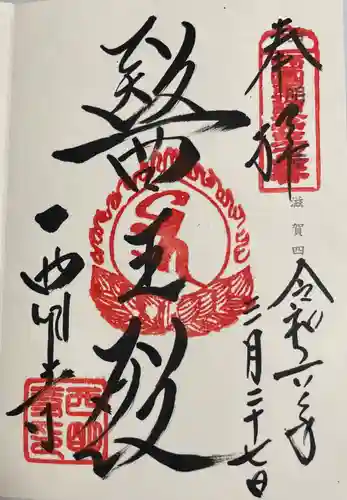 奉拝
滋賀四
令和六年
三月二十七日
醫王殿
西明寺
西明寺印